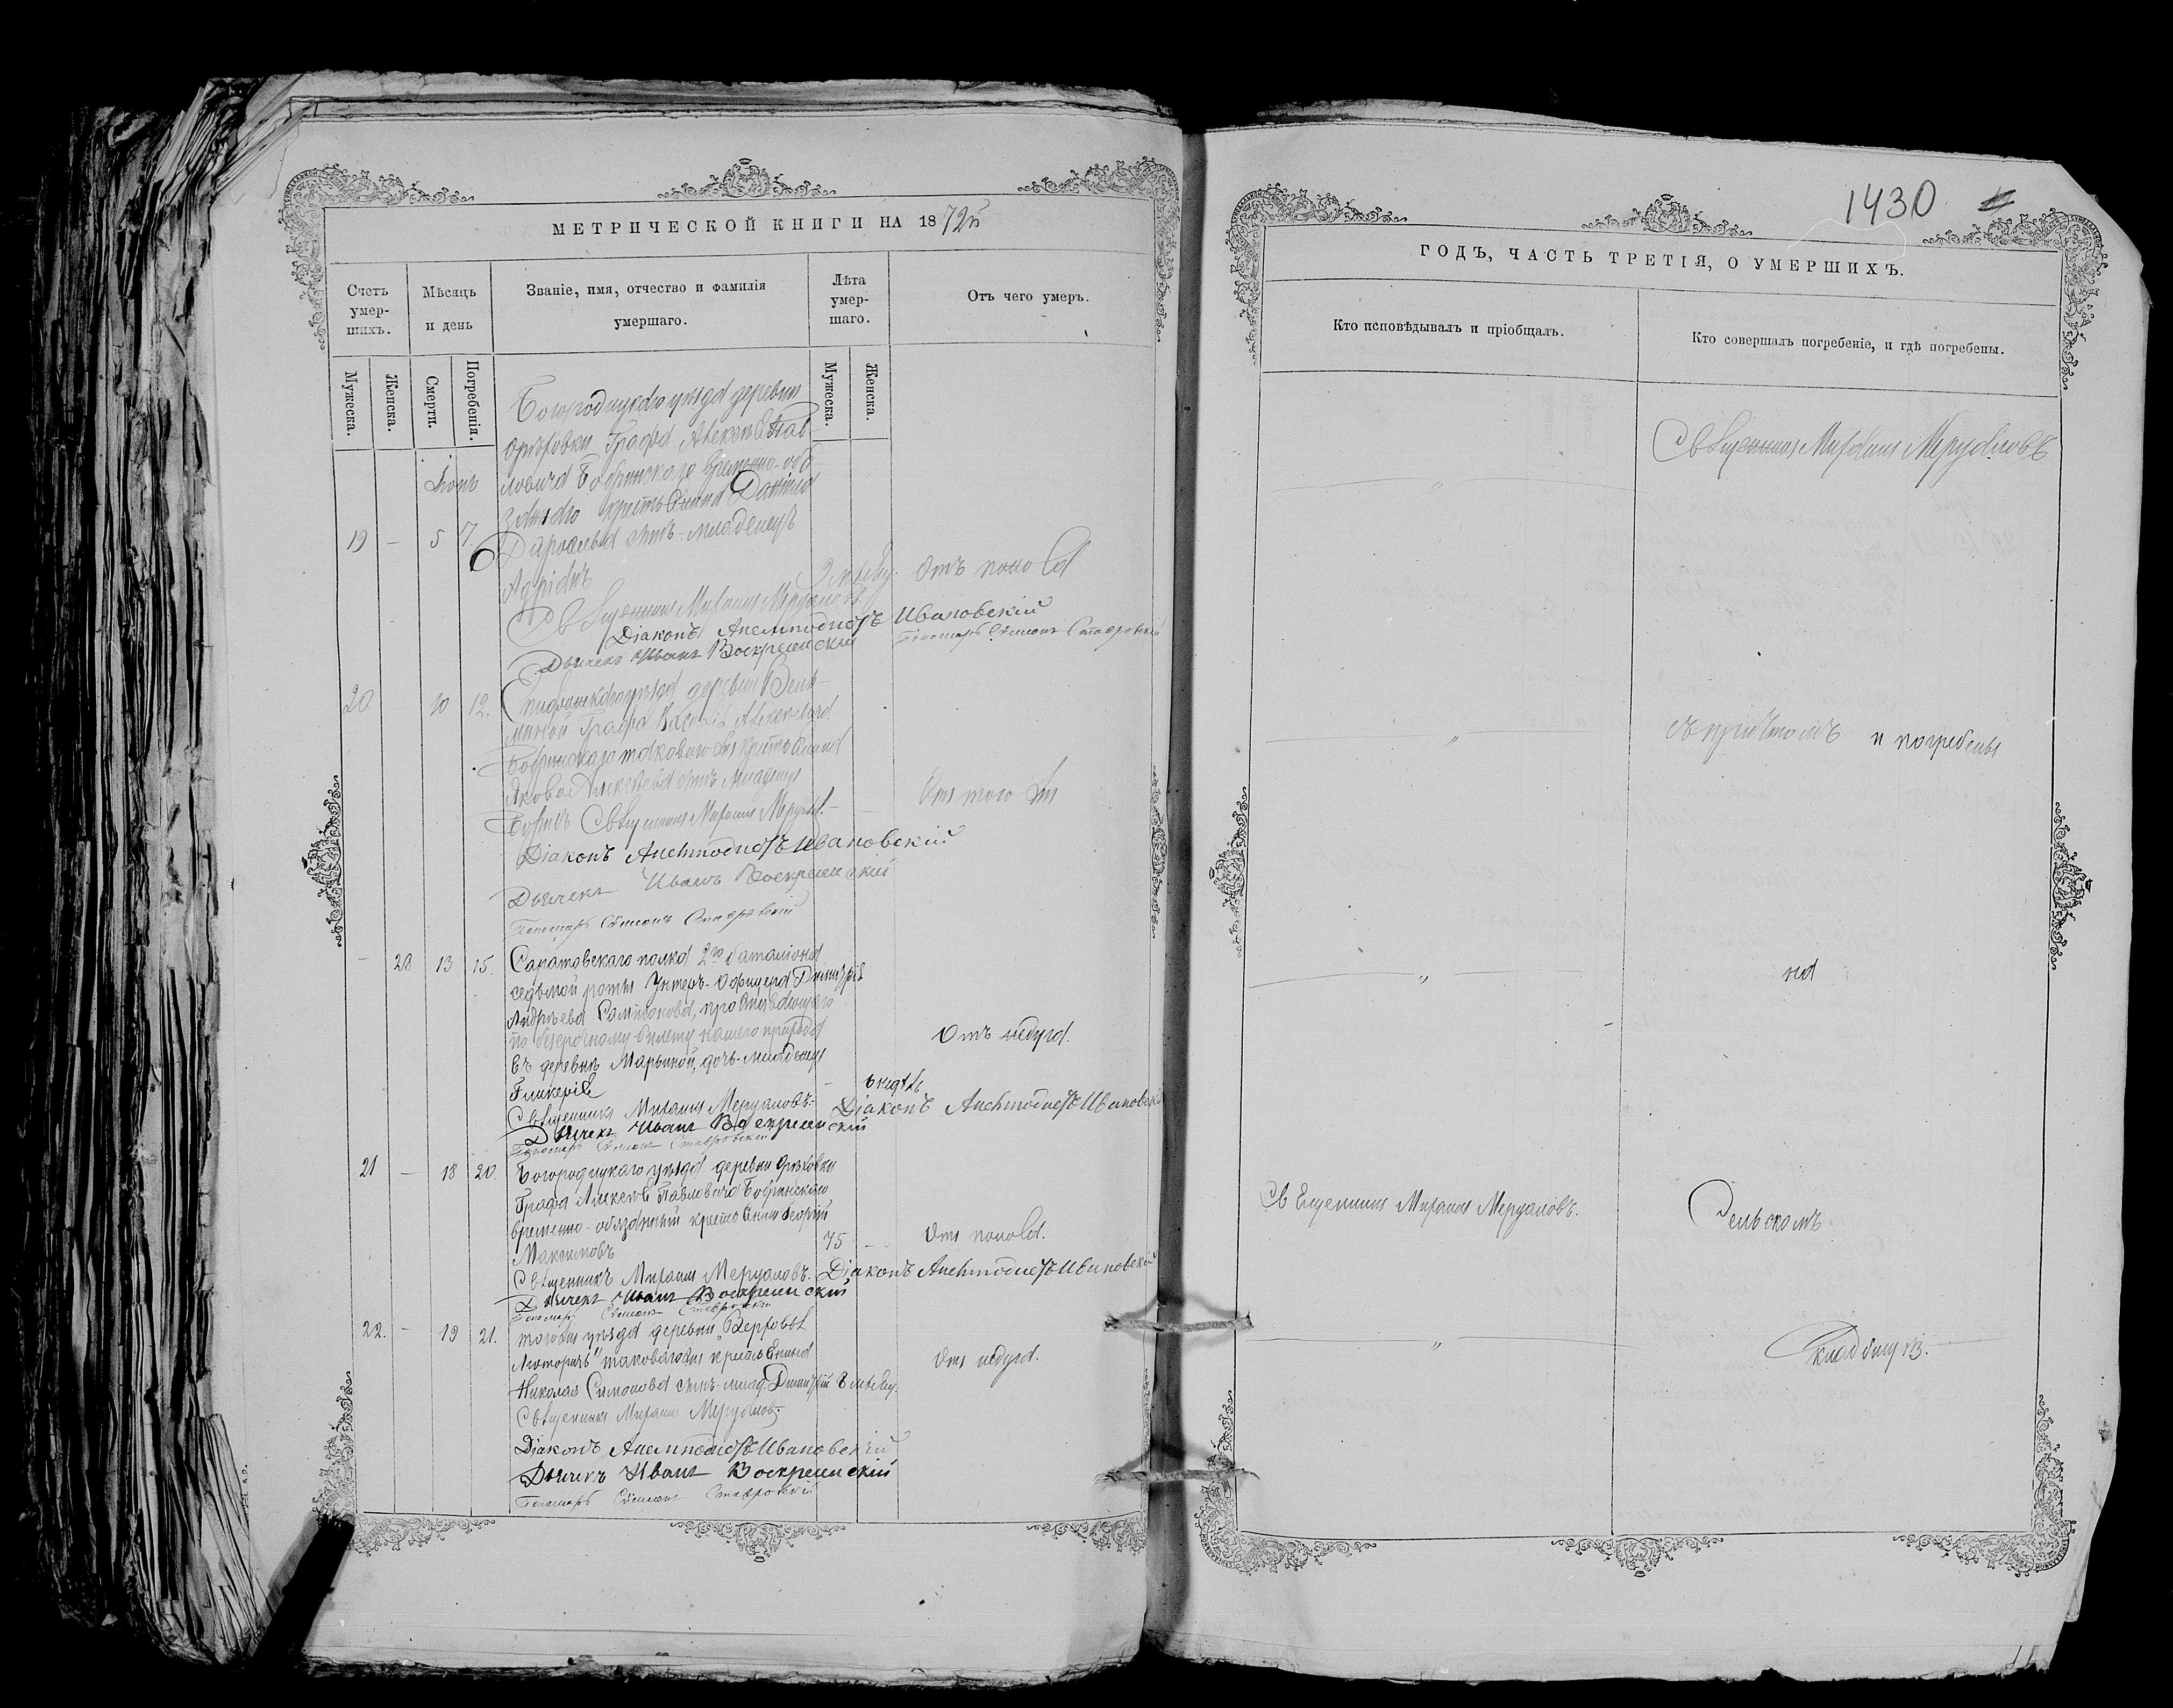 МЕТРИЧЕСКОЙ КНИГИ НА 1872й
Счетъ умер- шихъ.
Мѣсяцъ и день
Званіе, имя, отчество и фамилія умершаго.
Лѣта умер- шаго.
Отъ чего умеръ.
Мужеска.
Женска.
Смерти.
Погребенія.
Мужеска.
Женска.
Богородицкаго уѣзда деревни
Орѣховки Графа Алексѣя Пав-
ловича Бобринскаго временно-обя-
Іюнь
заннаго крестьянина Даніила
19 — 5 7.
сынъ-младенецъ
Адріанъ
Отъ поноса
Священникъ Михаилъ Меруаловъ
Діаконъ Анемподистъ Ивановскій
Дьячекъ Иванъ Воскресенскій
Пономарь Симеонъ Ставровскій
20 — 10 12.
Епифанскаго уѣзда деревни
Графа Василія Алексѣевича
Бобринскаго таковаго же крестьянина
Якова Алексѣева сынъ младенецъ
Отъ того же
Священникъ Михаилъ Меруал.
Діаконъ Анемподистъ Ивановскій
Дьячекъ Иванъ Воскресенскій
Пономарь Симеонъ Ставровскій
— 20 13 15.
Саратовскаго полка 2го баталіона
седьмой роты Унтеръ-Офицера Димитрія
Андреева проживающаго
по безсрочному билету нашего прихода
Отъ недуга.
въ деревнѣ Марьиной, дочь-младенецъ
Гликерія
6 недѣль
Священникъ Михаилъ Меруаловъ.
Діаконъ Анемподистъ Ивановскій
Дьячекъ Иванъ Воскресенскій
Пономарь Симеонъ Ставровскій
21 — 18 20.
Богородицкаго уѣзда деревни Орѣховки
Графа Алексѣя Павловича Бобринскаго
временно-обязанный крестьянинъ Георгій
Максимовъ
75 —
Отъ поноса.
Священникъ Михаилъ Меруаловъ.
Діаконъ Анемподистъ Ивановскій
Дьячекъ Иванъ Воскресенскій
Пономарь Симеонъ Ставровскій
22. — 19 21.
тогоже уѣзда деревни „Верховья
Люторичъ" таковагоже крестьянина
Отъ недуга.
Николая Симонова сынъ-млад. Димитрій
Священникъ Михаилъ Меруалов.
Діаконъ Анемподистъ Ивановскій
Дьячекъ Иванъ Воскресенскій
Пономарь Симеонъ Ставровскій
1430
ГОДЪ, ЧАСТЬ ТРЕТІЯ, О УМЕРШИХЪ.
Кто исповѣдывалъ и пріобщалъ.
Кто совершалъ погребеніе, и гдѣ погребены.
Священникъ Михаилъ Меруаловъ
— „ —
— „ —
съ причтомъ и погребены
— „ —
на
Священникъ Михаилъ Меруаловъ.
Сельскомъ
— „ —
кладбищѣ.